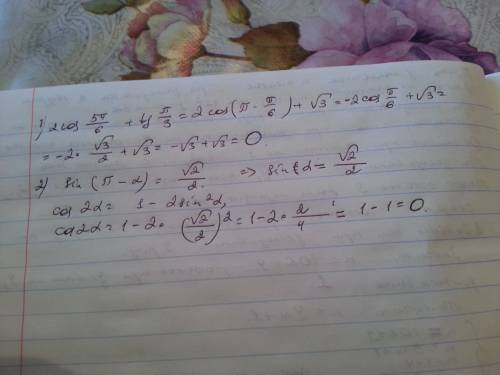 1) 2cos 5π/6 + tg π/3 = 2cos(π - π/6) + √3 = -2cos π/6 + √3 =
= -2 · √3/2 + √3 = -√3 + √3 = 0.
2) sin(π - α) = √2/2. => sin α = √2/2
cos 2α = 1 - 2sin²α,
cos 2α = 1 - 2 · (√2/2)² = 1 - 2 · 2/4 = 1 - 1 = 0.